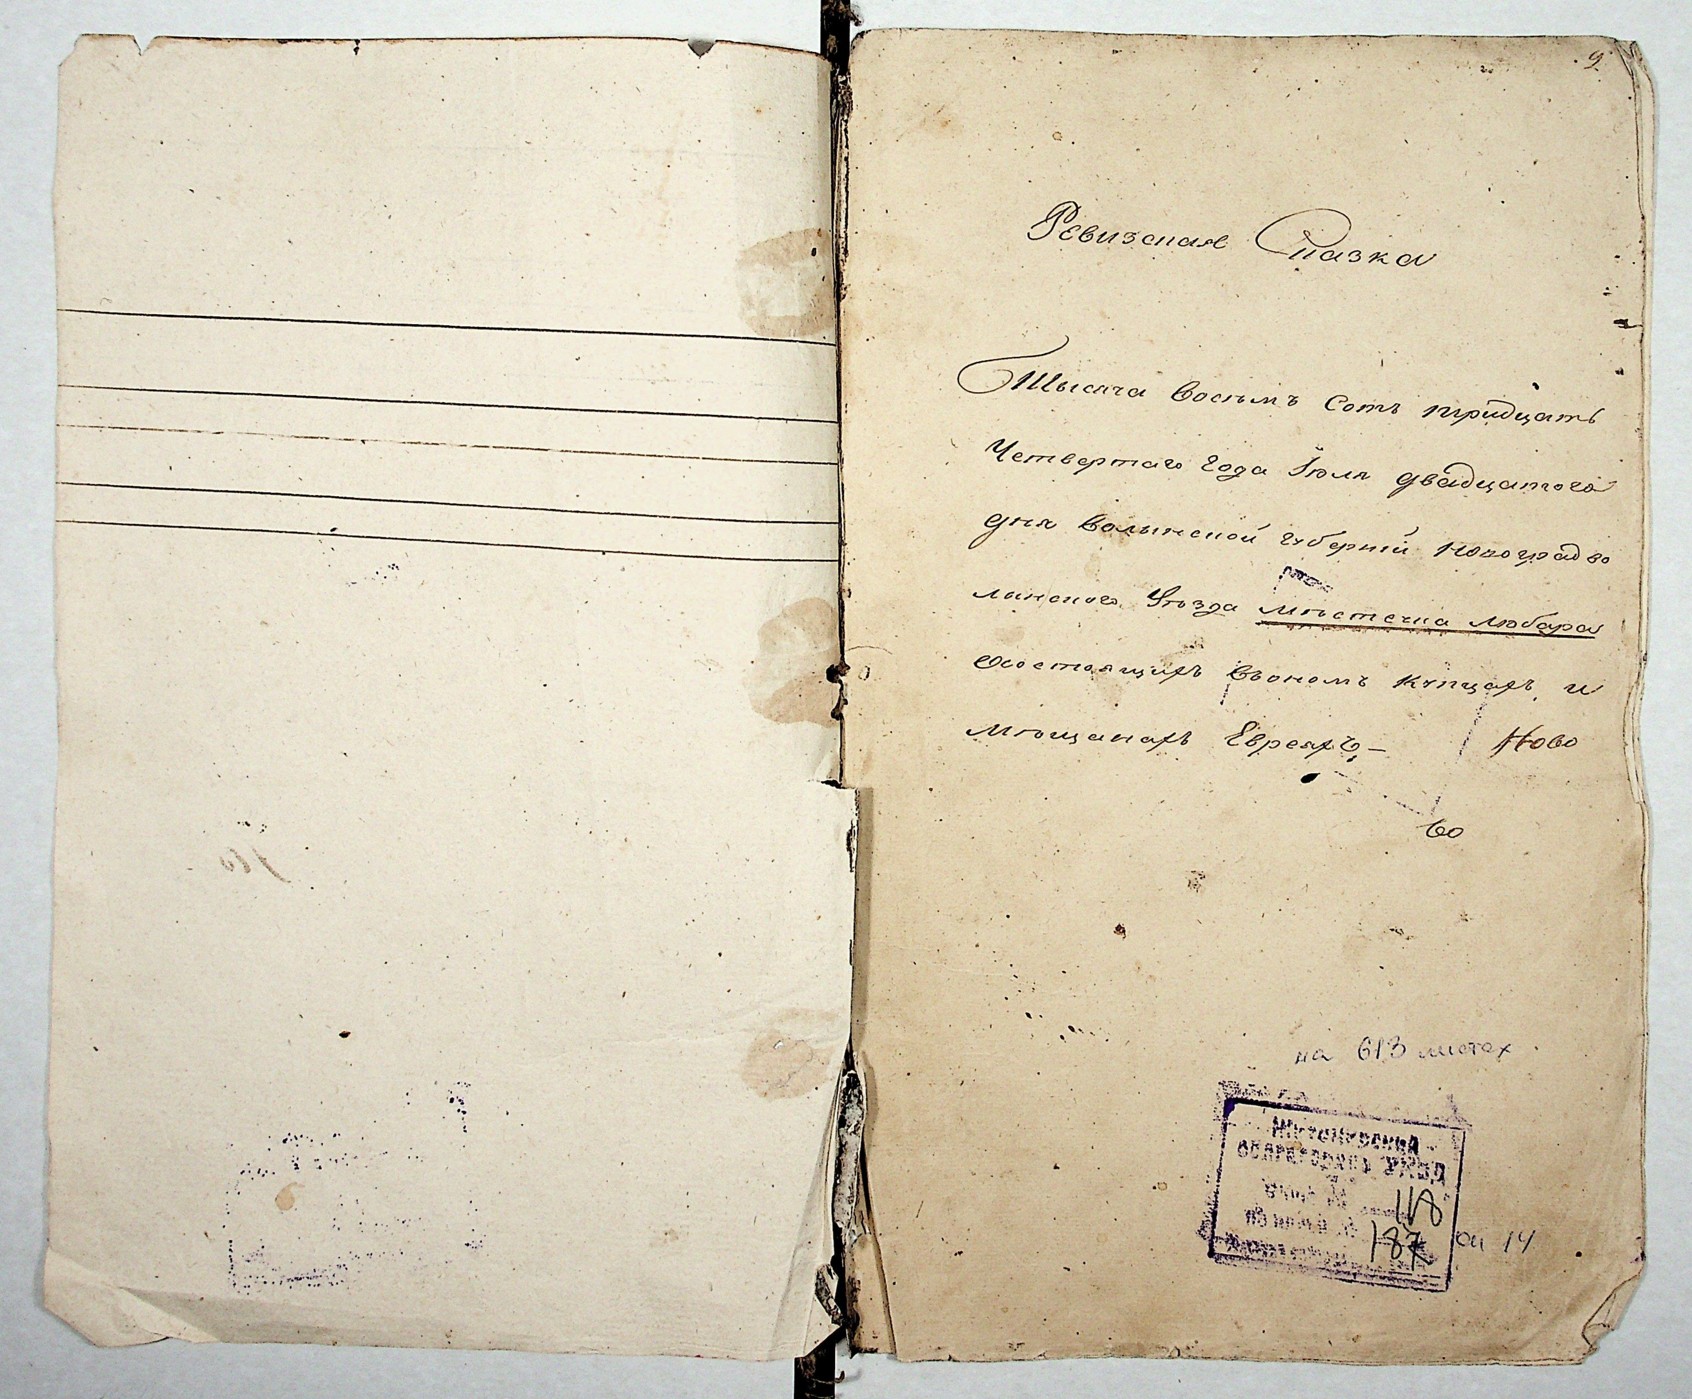 9
Ревизская Сказка
Тысяча восемъ сотъ тридцать
Четвертаго года Іюля двадцатого
дня волынской губерніи новоградво
лынского уѣзда мѣстечка Любара
Осостоящихъ въономъ купцахъ и
мѣщанахъ Евреяхъ – Ново
во
на 613 листах
Житомирский
облгосархив УМВД
118
187 оп 14